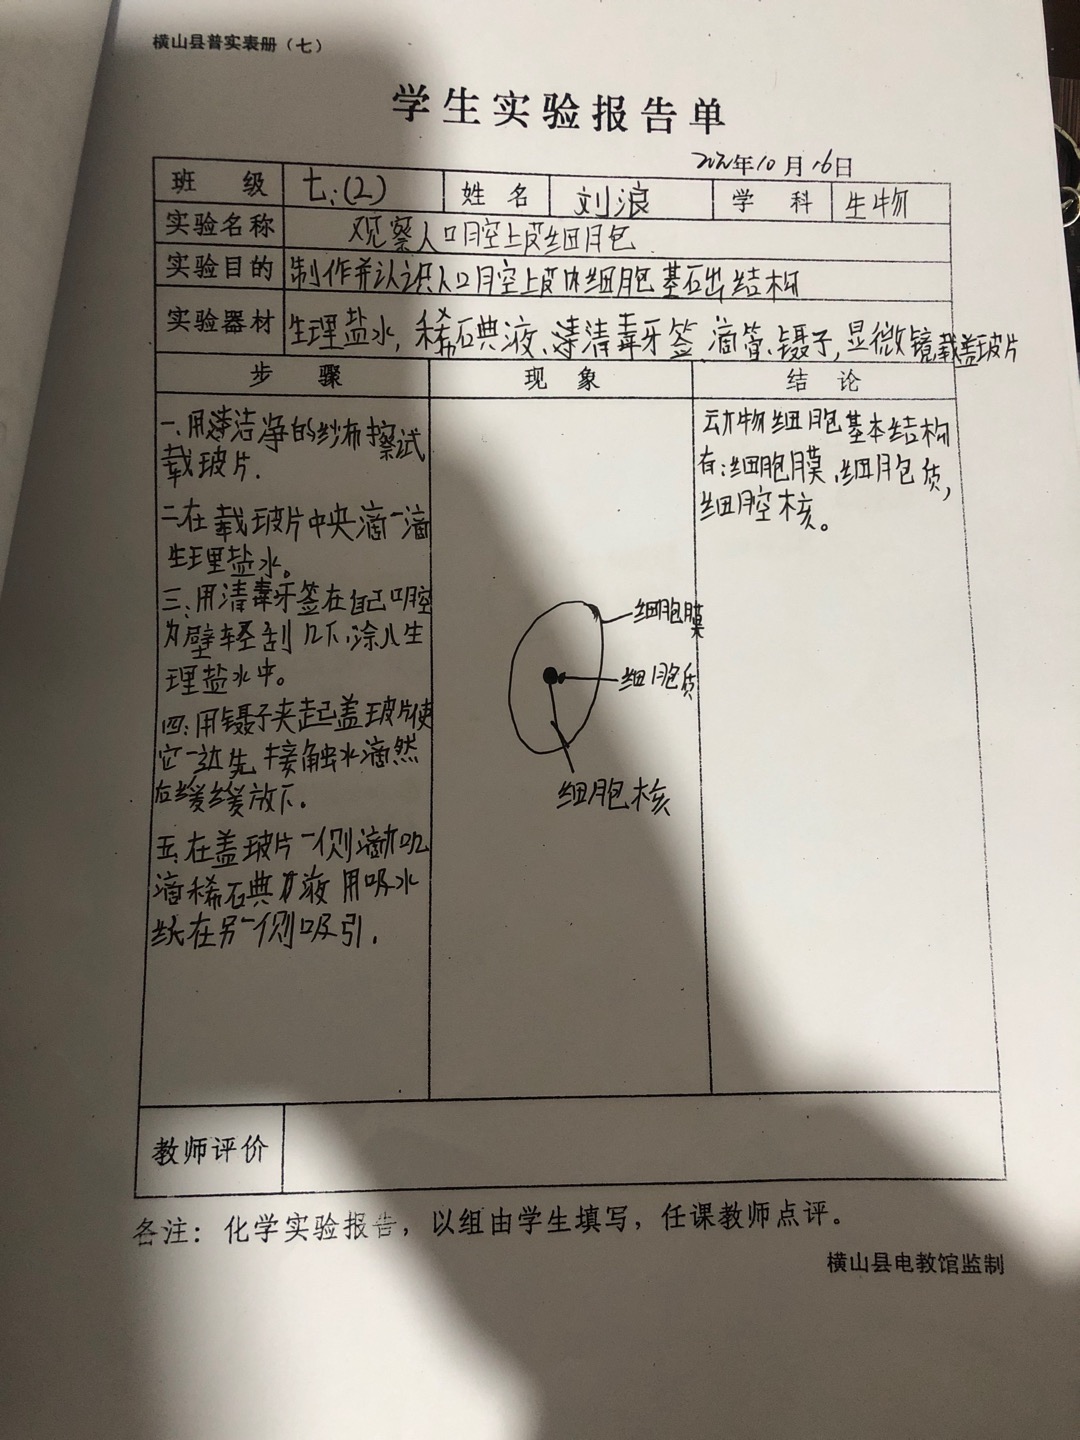 横山县普实表册（七）
学生实验报告单
年10月16日
班 级 七:(2) 姓 名 刘浪 学 科 生物
实验名称 观察人口腔上皮细胞
实验目的 制作并认识人口腔上皮 细胞基础结构
实验器材 生理盐水，稀碘液、清毒牙签、滴管、镊子，显微镜载盖玻片
步 骤 现 象 结 论
一、用清洁净的纱布擦试
载玻片.
二在载玻片中央滴一滴
生理盐水。
三、用清毒牙签在自己口腔
壁轻刮几下、涂入生
理盐水中。
四、用镊子夹起己盖玻片使
它一边先接触水滴然
后缓缓放下.
五、在盖玻片一侧滴加
滴稀碘液用吸水
纸在另一侧吸引.
细胞膜
细胞质
细胞核
动物细胞基本结构
有:细胞膜、细胞质,
细腔核。
教师评价
备注：化学实验报告，以组由学生填写，任课教师点评。
横山县电教馆监制